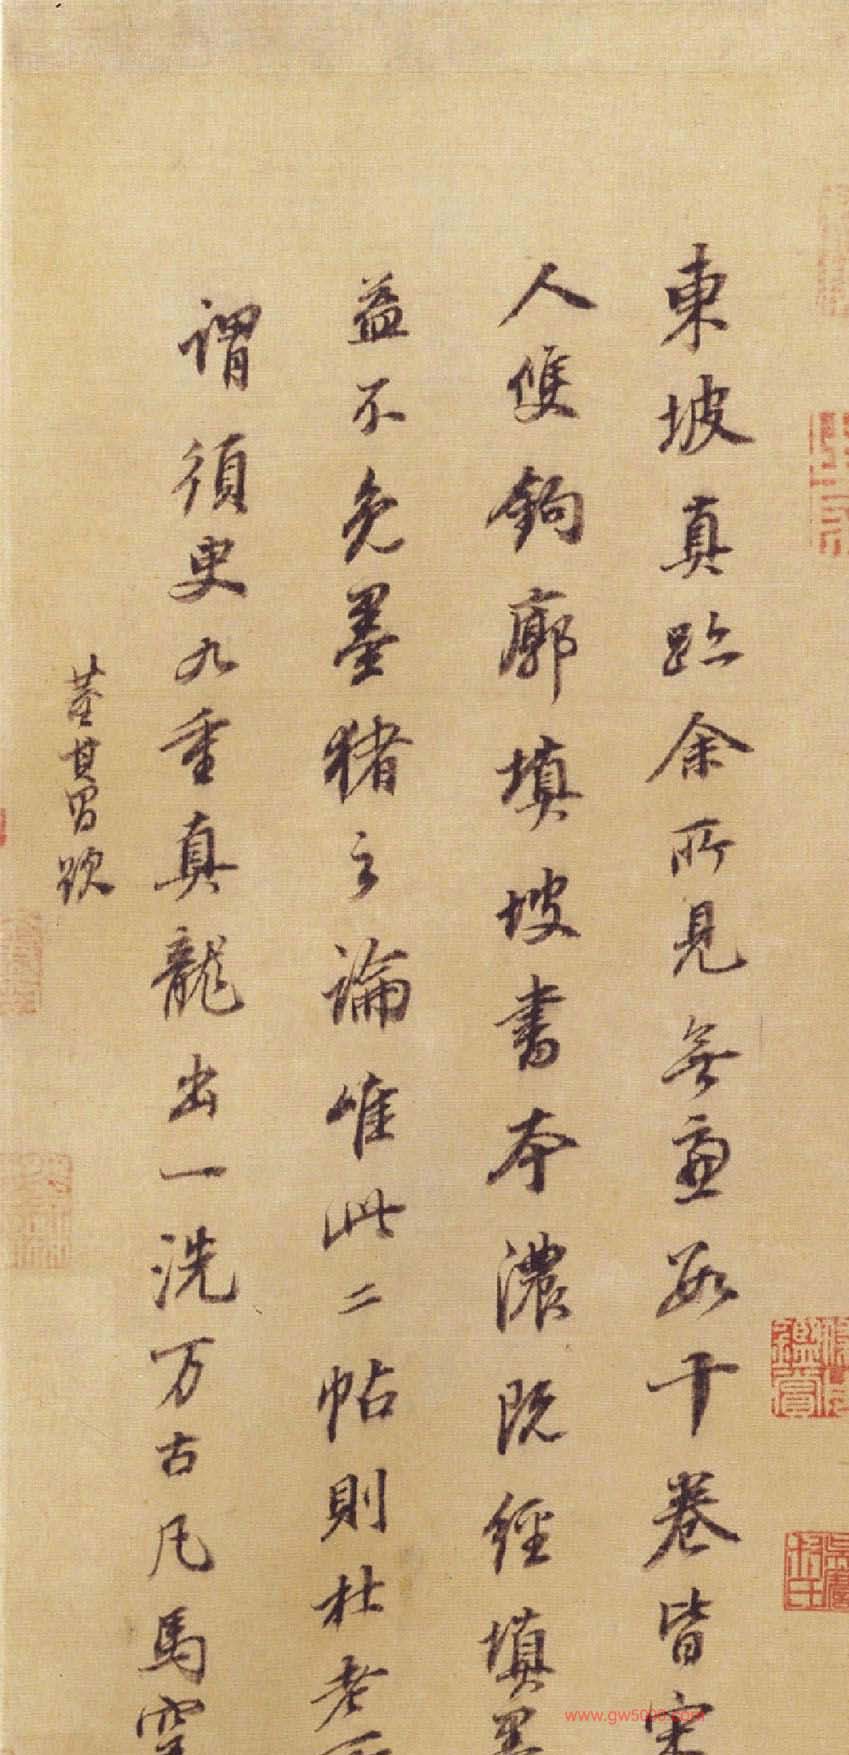 東坡真跡余所見無慮數十卷皆宋
人雙鉤廓填坡書本濃既經填墨
益不免墨猪之論唯此二帖則杜老所
謂須臾九重真龍出一洗万古凡馬空
董其昌跋
www.gw5000.com